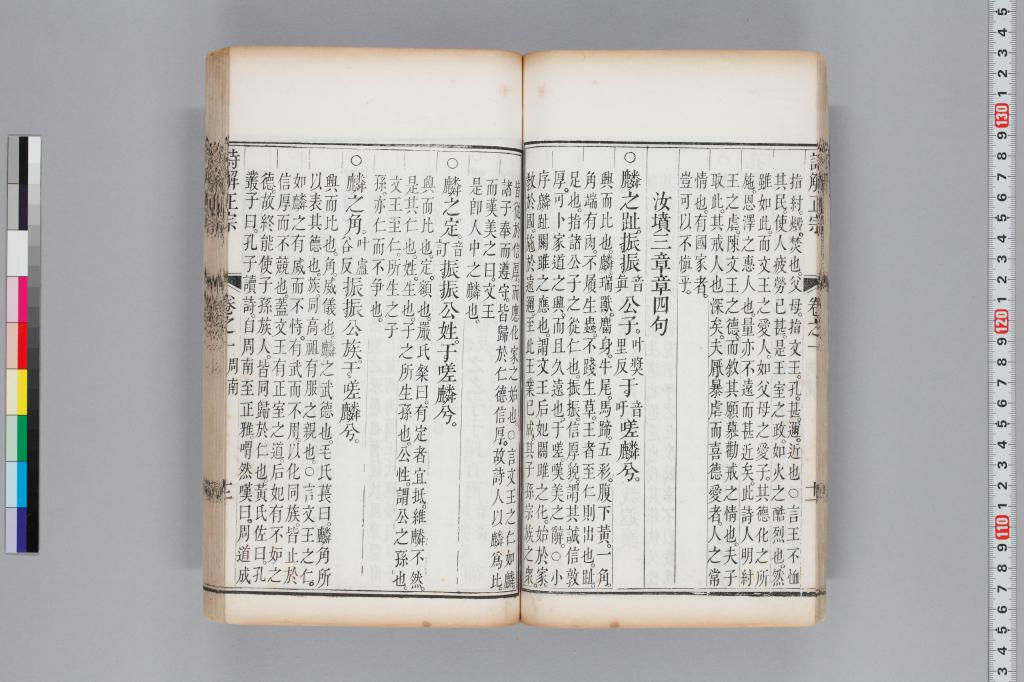 指紂。燬。焚也。父母。指文王。孔。甚。邇。近也〇言王不恤
其民使人疲勞已甚是王室之政。如火之酷烈也。然
雖如此。而文王之愛人。如父母之愛子。其德化之所
施。恩澤之惠人也。量亦不遠而甚近矣。此詩人明紂
王之虐。陳文王之德。而敘其願慕勸戒之情也。夫子
取此。其戒人也。深矣。夫厭暴虐而喜德愛者。人之常
情也。有國家者。
豈可以不愼乎。
汝墳三章章四句
〇麟之趾。振振音眞公子。叶奬里反于音吁嗟麟兮。
興而比也。麟瑞獸。麕身。牛尾。馬蹄。五彩。腹下黃。一角。
角端有肉。不履生蟲。不踐生草。王者至仁則出也。趾。
足也。指諸公子之從仁也。振振。信厚貌。謂其誠信敦
厚。可卜家道之興。而且久遠也。于嗟嘆美之辭。〇小
序麟趾關雎之應也。謂文王后妃關雎之化。始於家
敎於國。施於遠邇。至此王業已成。其子孫宗族之衆。
皆從於信厚。而應化家之始也。〇言文王之仁如麟
諸子奉而遵守。皆歸於仁德信厚。故詩人以麟爲比。
而嘆美之曰文王
是卽人中之麟也。
〇麟之定。音訂振振公姓。于嗟麟兮。
興而比也。定。額也。嚴氏粲曰。有定者宜抵。維麟不然。
是其仁也。姓。生也。子之所生孫也。公姓。謂公之孫也。
文王至仁。所生之子
孫。亦仁而不爭也。
〇麟之角。叶盧谷反振振公族。于嗟麟兮。
興而比也。角。威儀也。麟之武德也。毛氏萇曰。麟角所
以表其德也。族。同高祖有服之親也。〇言文王之仁。
如麟之有威而不恃。有武而不用。以化同族。皆止於
信厚而不競也。蓋文王有正室之道。后妃有不妒之
德。故終能使子孫族人。皆同歸於仁也。黃氏佐曰。孔
叢子曰。孔子讀詩。自周南至正雅。喟然嘆曰。周道成
詩解正宗 卷之一 周南